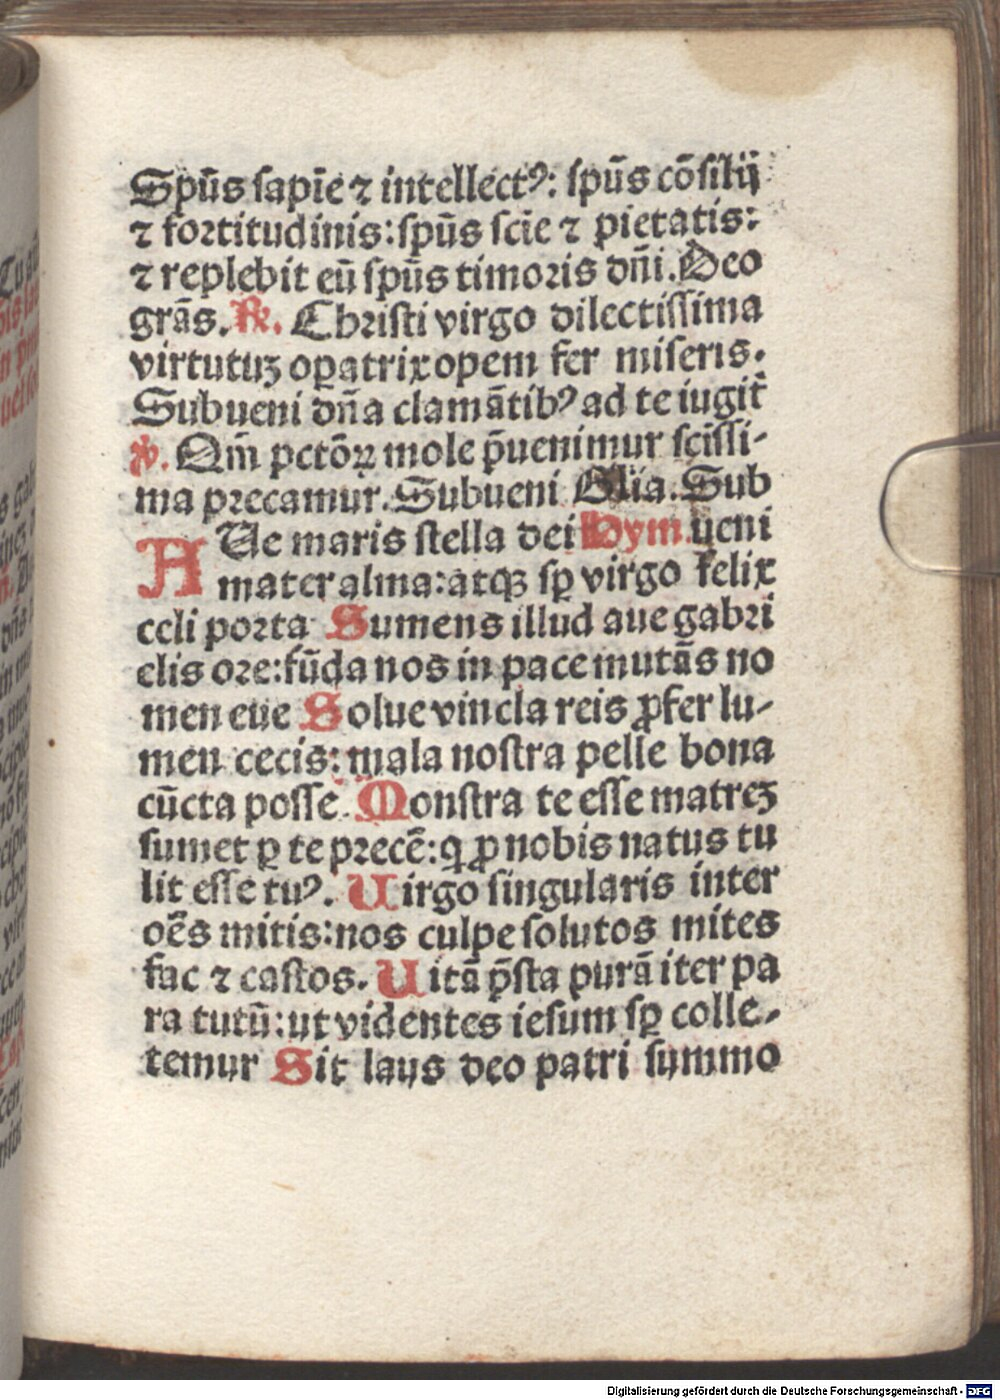 Spūs sapīe ⁊ intellectꝰ: spūs cōsilij
⁊ fortitudinis: spūs scīe ⁊ pietatis:
⁊ replebit eū spūs timoris dñi. Deo
grās. ℟. Christi virgo dilectissima
virtutuȝ oꝑatrix opem fer miseris.
Subueni dña clamātibꝰ ad te iugit̄
℣. Qm̄ pctōꝝ mole p̄uenimur scissi-
ma precamur. Subueni Glīa. Sub
AUe maris stella dei Hym. ueni
mater alma: atqȝ sꝑ virgo felix
celi porta Sumens illud aue gabri
elis ore: fūda nos in pace mutās no
men eue Solue vincla reis ꝓfer lu-
men cecis: mala nostra pelle bona
cūcta posse. Monstra te esse matreȝ
sumet ꝑ te precē: q ꝓ nobis natus tu
lit esse tuꝰ. Uirgo singularis inter
oēs mitis: nos culpe solutos mites
fac ⁊ castos. Uitā p̄sta purā iter pa
ra tutū: ut videntes iesum sꝑ colle-
temur Sit laus deo patri summo
Digitalisierung gefördert durch die Deutsche Forschungsgemeinschaft - DFG